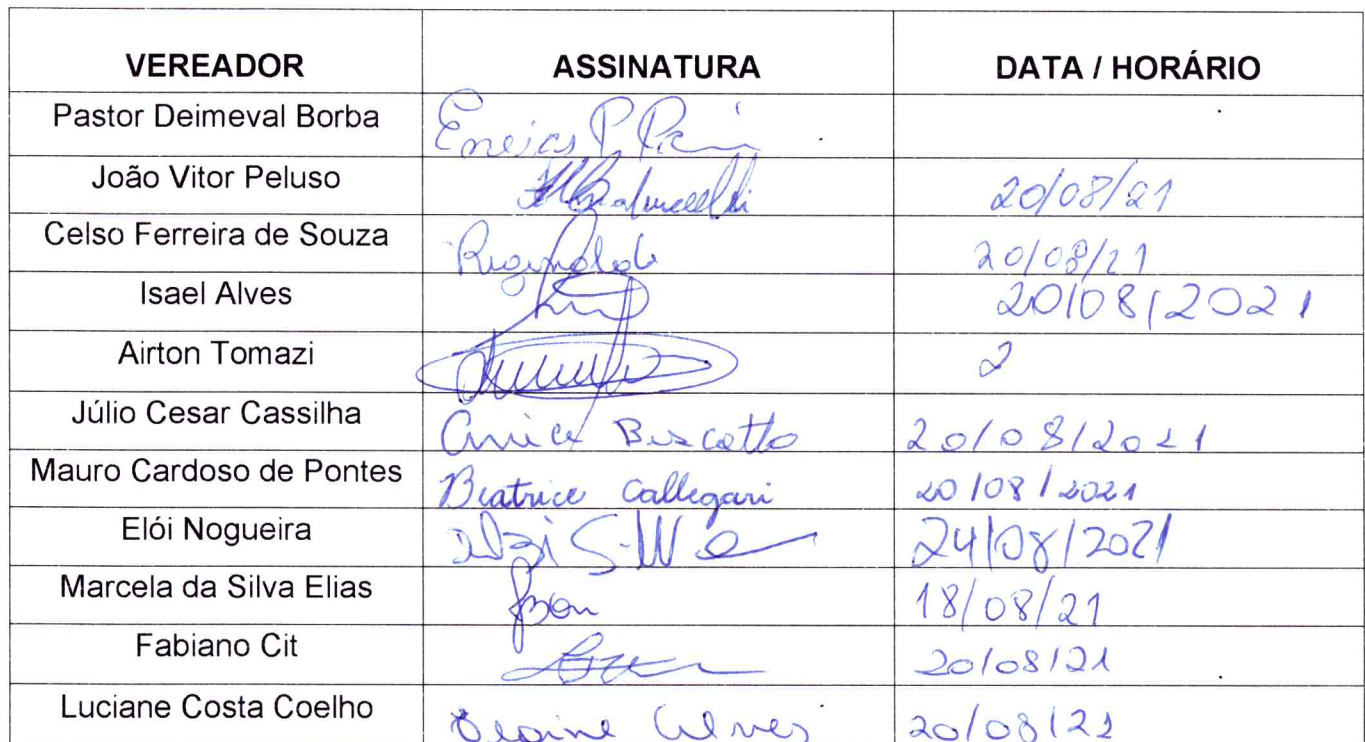 VEREADOR ASSINATURA DATA / HORÁRIO
Pastor Deimeval Borba Eneias P.
João Vitor Peluso 20/08/21
Celso Ferreira de Souza Reginaldo 20/08/21
Isael Alves 20/08/2021
Airton Tomazi 2
Júlio Cesar Cassilha Biscotto 20/08/2021
Mauro Cardoso de Pontes Beatrice Callegari 20/08/2021
Elói Nogueira 24/08/2021
Marcela da Silva Elias 18/08/21
Fabiano Cit 20/08/21
Luciane Costa Coelho Alves 20/08/21